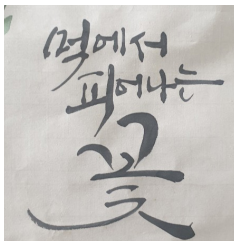 먹에서
피어나는
꽃